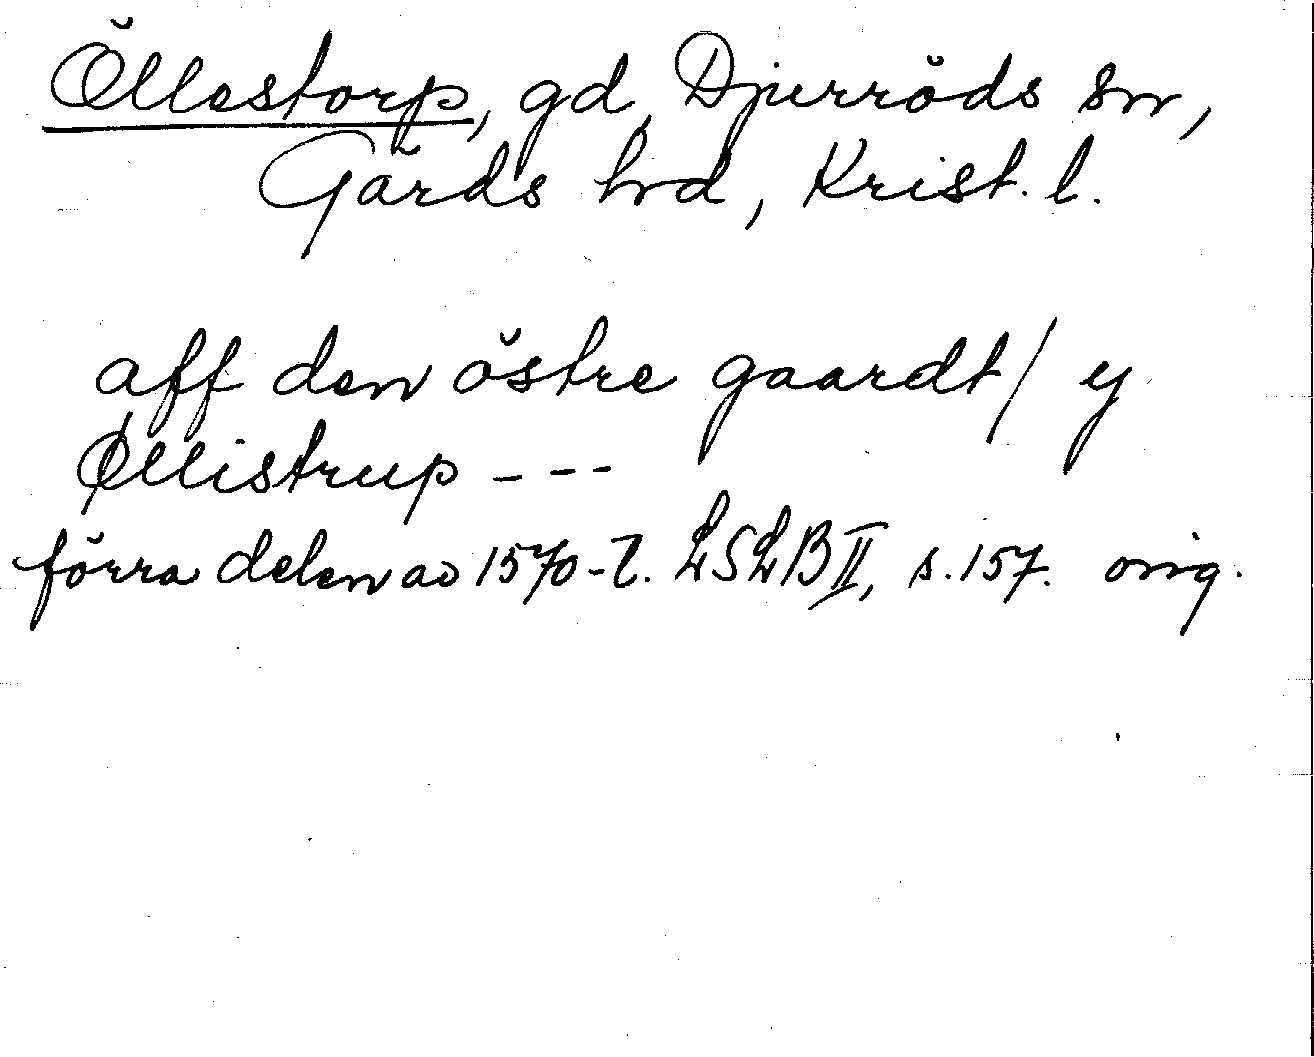 Öllestorp, gd, Djurröds sn,
Gärds hd, Krist. l.
aff den östre gaardt/ y
Øllistrup ---
förra delen av 1570-t. LSLB II, s. 157. orig.